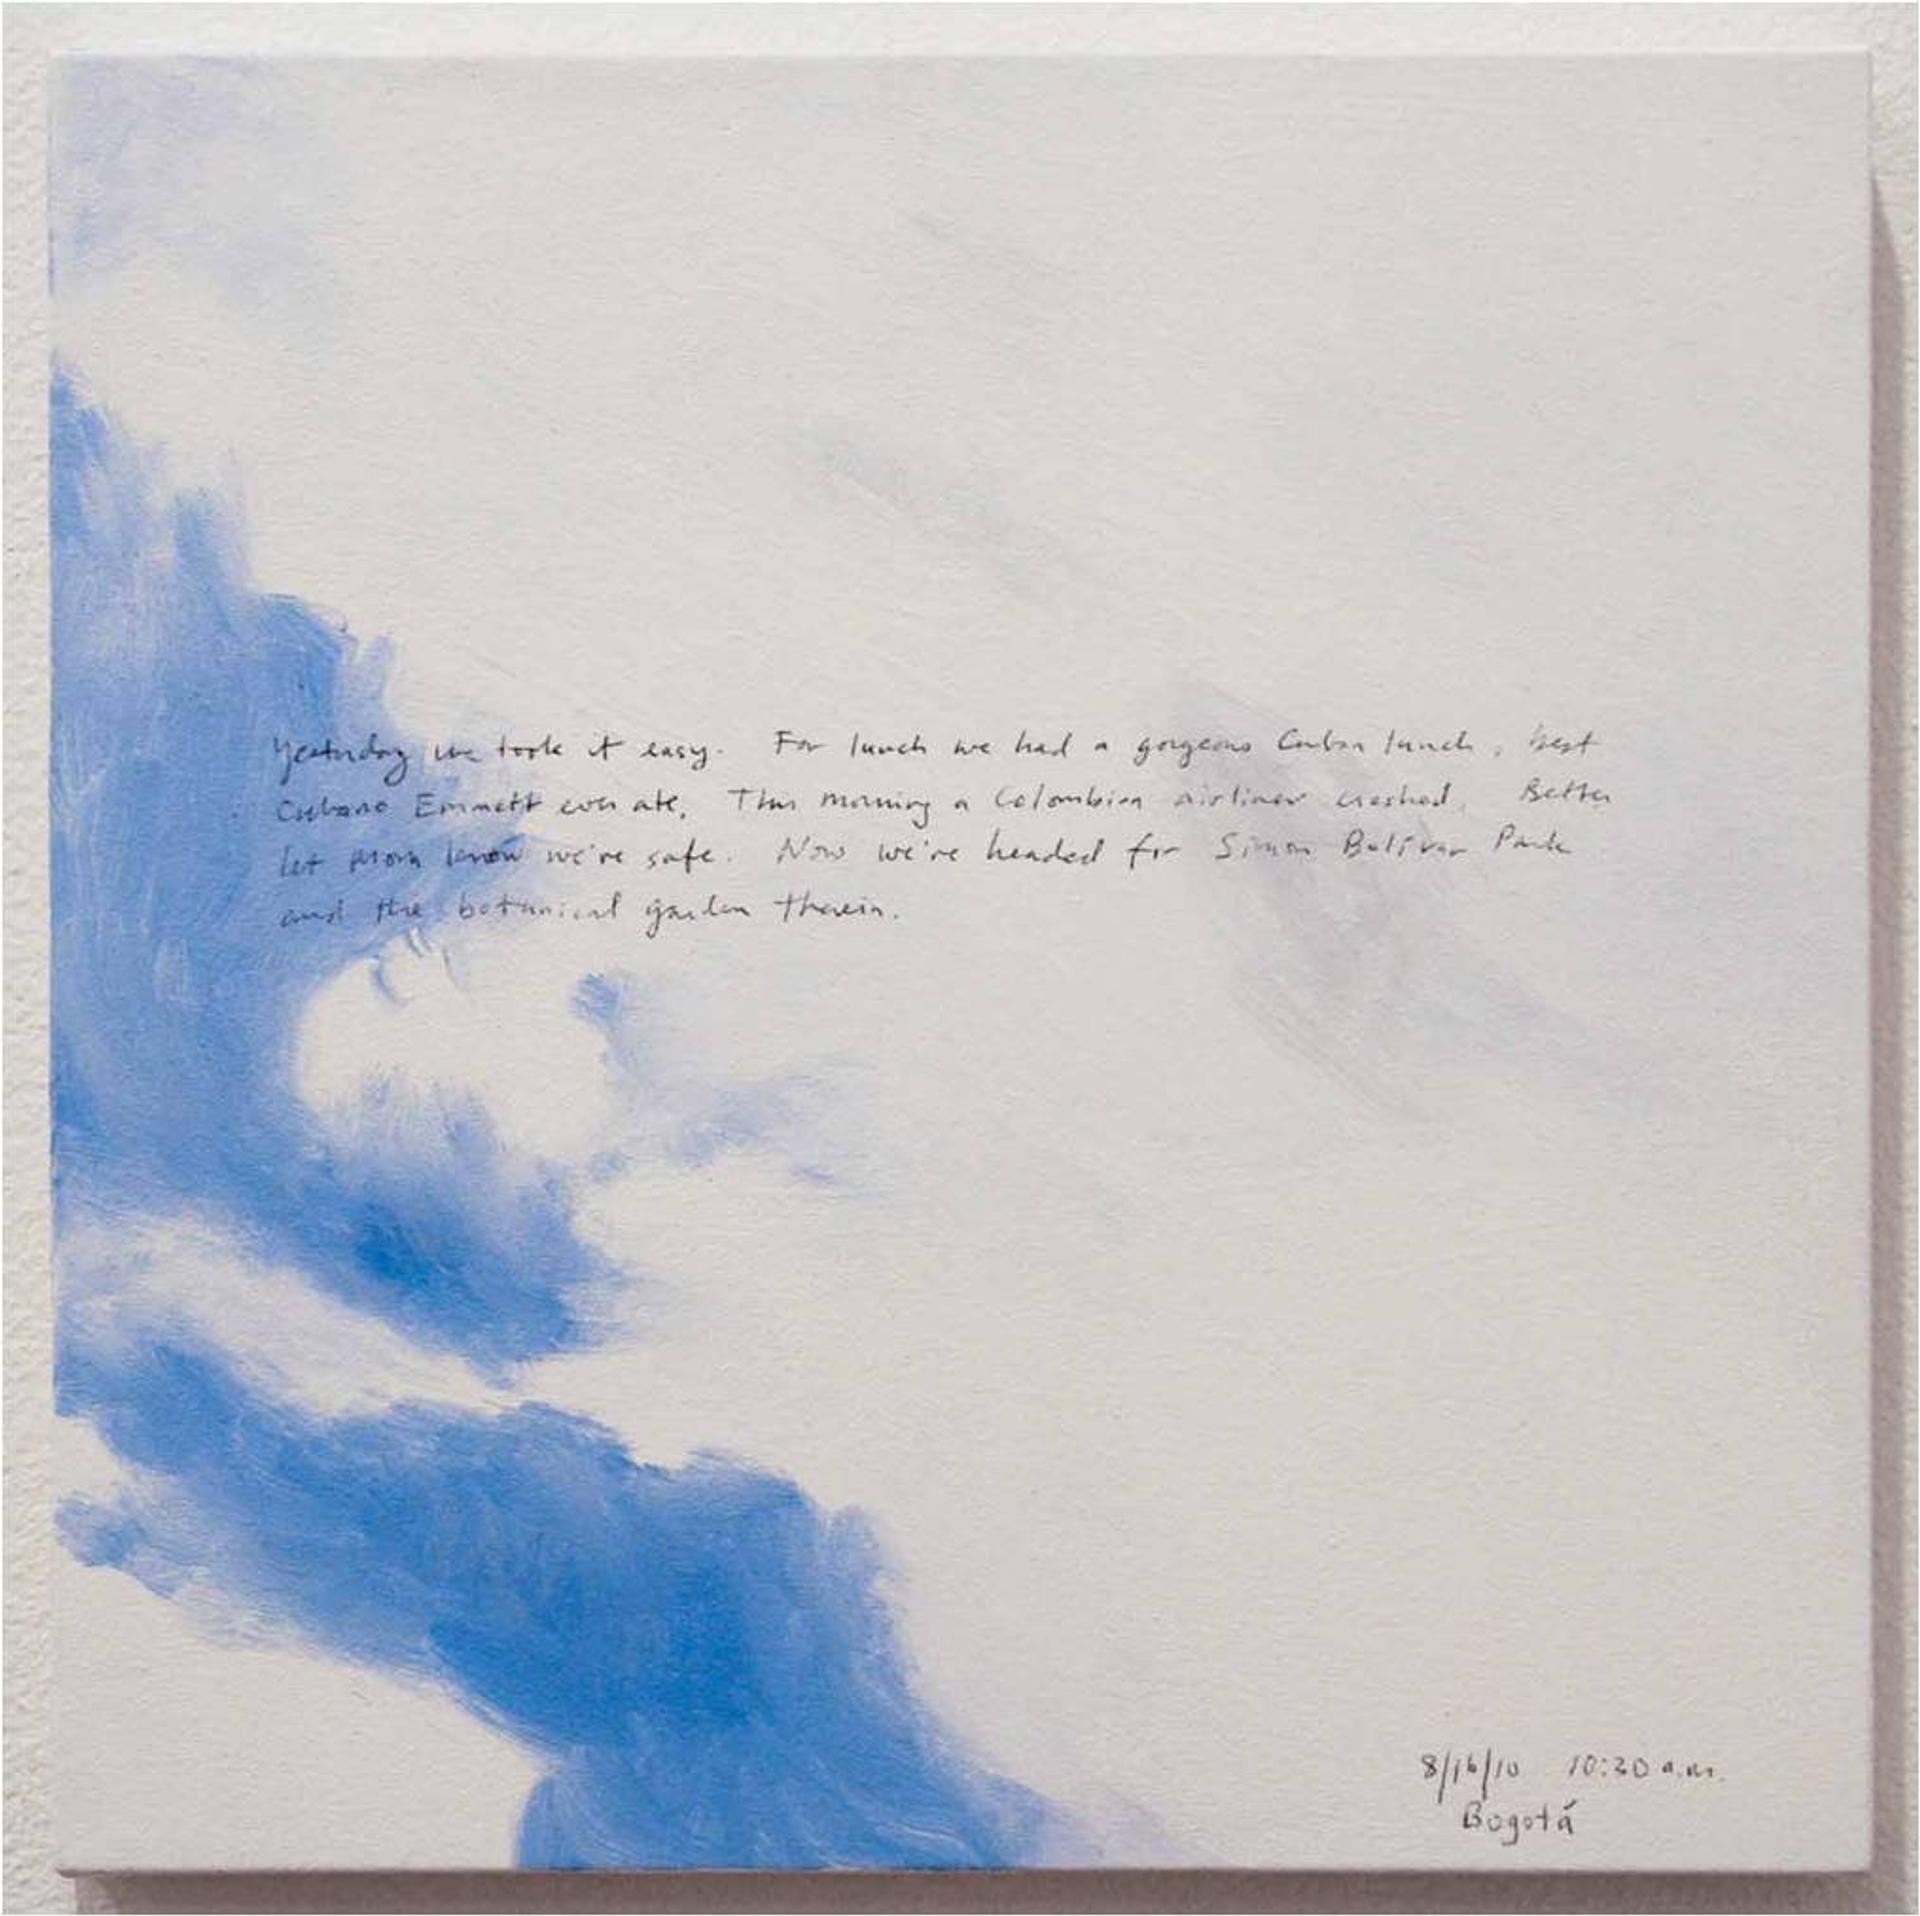 Yesterday we took it easy. For lunch we had a gorgeous Cuban lunch, best
Cubano Emmett ever ate. This morning a Colombian airliner crashed. Better
let mom know we're safe. Now we're headed for Simon Bolívar Park
and the botanical garden therein.
8/16/10 10:30 a.m.
Bogotá